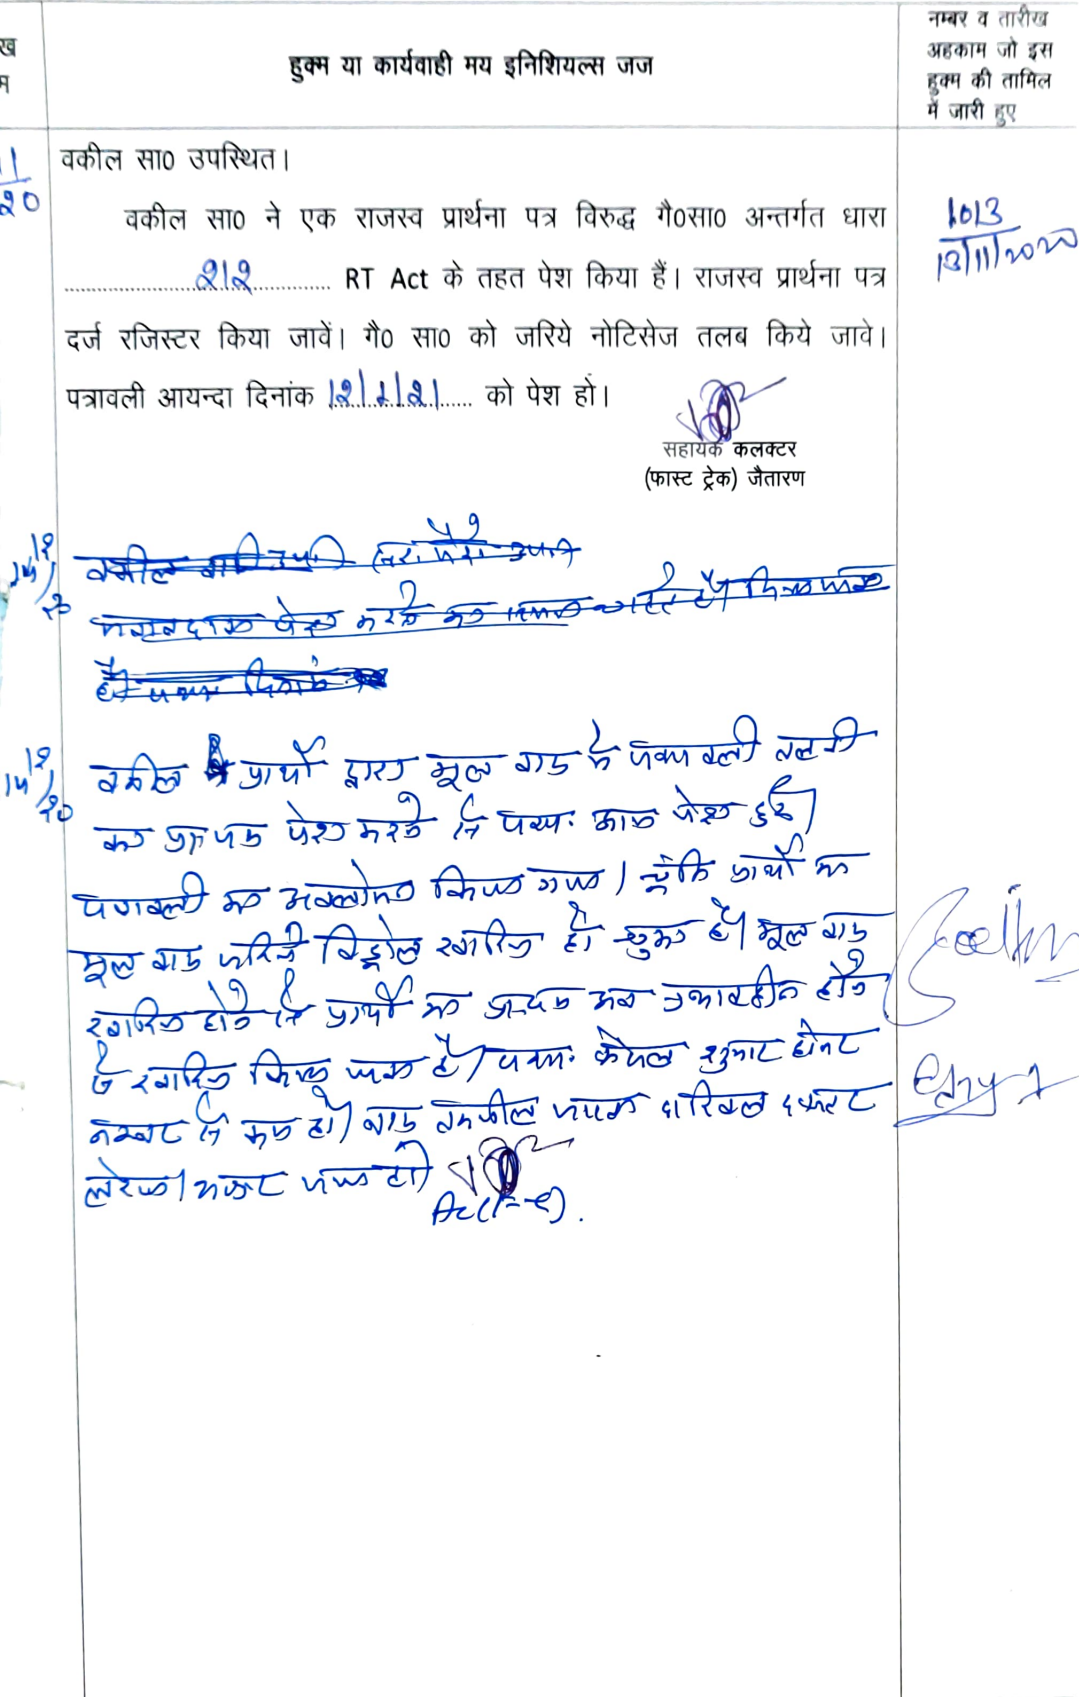 ख
म
हुक्म या कार्यवाही मय इनिशियल्स जज
नम्बर व तारीख
अहकाम जो इस
हुक्म की तामिल
में जारी हुए
11
20
वकील सा0 उपस्थित।
वकील सा0 ने एक राजस्व प्रार्थना पत्र विरुद्ध गै0सा0 अन्तर्गत धारा
212 RT Act के तहत पेश किया हैं। राजस्व प्रार्थना पत्र
दर्ज रजिस्टर किया जावें। गै0 सा0 को जरिये नोटिसेज तलब किये जावे।
पत्रावली आयन्दा दिनांक 12/1/21 को पेश हो।
1013
13/11/2020
सहायक कलक्टर
(फास्ट ट्रेक) जैतारण
14/12/20
14/12/20
वकील प्रार्थी द्वारा मूल वाद में पत्रावली तलबी
का प्रा०पत्र पेश करने से पत्रा० आज पेश हुई।
पत्रावली का अवलोकन किया गया। चूंकि प्रार्थी का
मूल वाद जरिये विड्रोल खारिज हो चुका है। मूल वाद
खारिज होने से प्रार्थी का प्रा०पत्र अब प्रभावहीन होने
से खारिज किया जाता है। पत्रा० फैसल शुमार होकर
नम्बर से कम हो। बाद तकमील जाब्ता दाखिल दफ्तर